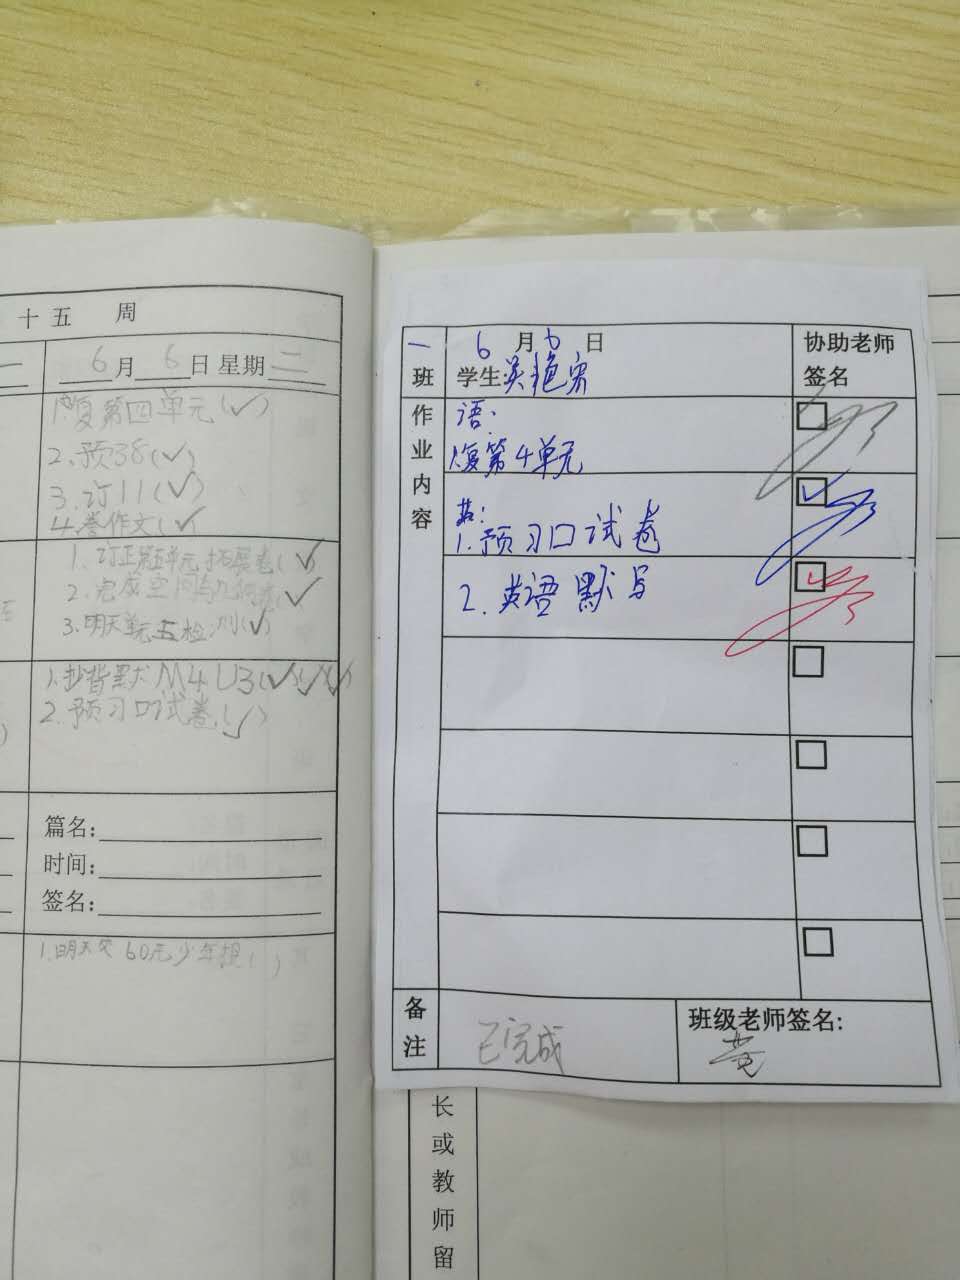 十五 周
6月6日 星期二
1.复第四单元(✓)
2.预38(✓)
3.订11(✓)
4.誊作文(✓)
1.订正第五单元拓展卷(✓)
2.完成空间与几何卷(✓
3.明天单元五检测(✓)
1.抄背默M4U3(✓)(✓)(✓)
2.预习口试卷(✓)
篇名:
时间:
签名:
1.明天交60元少年报( )
一班
6月6日
学生吴艳
协助老师签名
作业内容
语:
1.复第4单元
英:
1.预习口试卷
2.英语默写
备注
已完成
班级老师签名:
黄
长或教师留